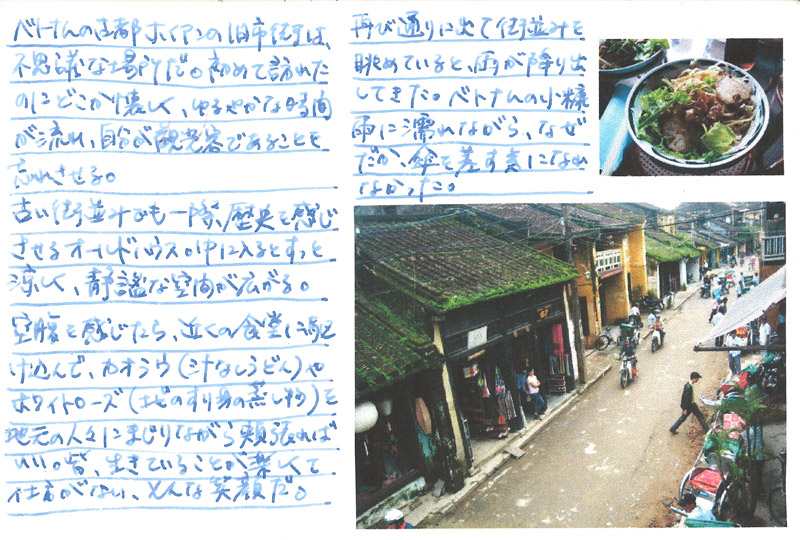 ベトナムの古都ホイアンの旧市街は、
不思議な場所だ。初めて訪れた
のにどこか懐しく、ゆるやかな時間
が流れ、自分が観光客であることを
忘れさせる。
古い街並みでも一際、歴史を感じ
させるオールドハウス。中に入るとすっと
涼しく、静謐な空間が広がる。
空腹を感じたら、近くの食堂に駆
け込んで、カオラウ(汁なしうどん)や
ホワイトローズ(エビのすり身の蒸し物)を
地元の人々にまじりながら頬張れば
いい。皆、生きていることが楽しくて
仕方がない、そんな笑顔だ。
再び通りに出て街並みを
眺めていると、雨が降り出
してきた。ベトナムの小糠
雨に濡れながら、なぜ
だか、傘を差す気になれ
なかった。
67